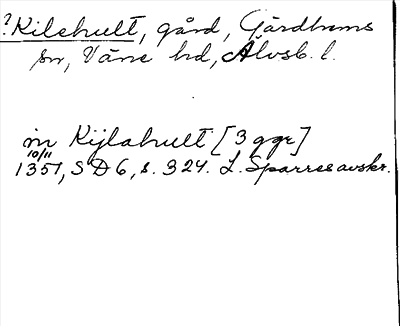 ? Kilehult, gård, Gärdhems
sn, Väne hd, Älvsb. l.
in Kijlahult [3 ggr]
10/11
1351, SD 6, s. 324. L. Sparres avskr.